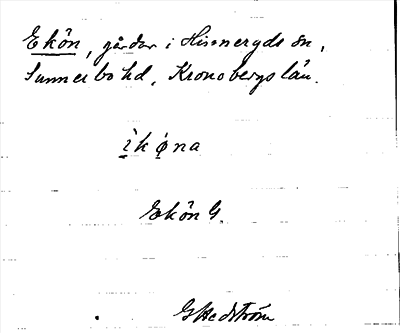 Ekön, gårdar i Hinneryds sn,
Sunnerbo hd, Kronobergs län.
ìkǿna
Ekön G.
G Hedström